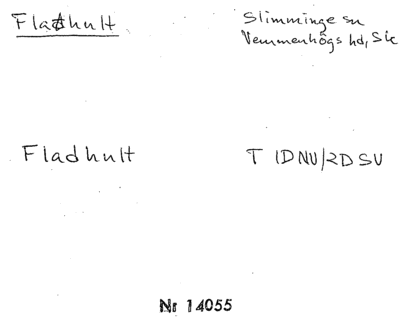 Flathult
Slimminge sn
Vemmenhögs hd, Sk
Fladhult
T 1DNV/2DSV
Nr 14055